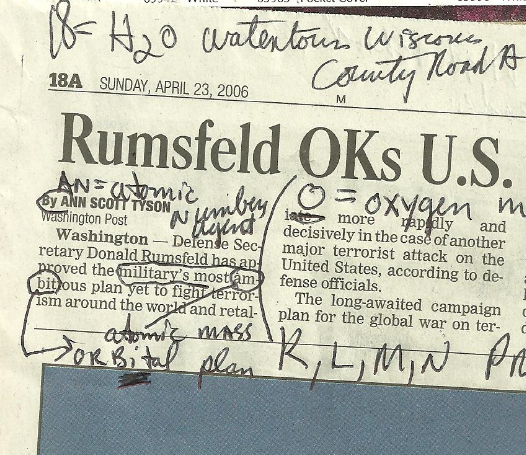 18 = H2O Watertown Wiscons
County Road A
18A SUNDAY, APRIL 23, 2006
M
Rumsfeld OKs U.S. m
AN = atomic
Number
agent
O = oxygen
By ANN SCOTT TYSON
Washington Post
Washington — Defense Sec-
retary Donald Rumsfeld has ap-
proved the military's most am-
bitious plan yet to fight terror-
ism around the world and retal-
iate more rapidly and
decisively in the case of another
major terrorist attack on the
United States, according to de-
fense officials.
The long-awaited campaign
plan for the global war on ter-
atomic mass
ORBital plan
K, L, M, N